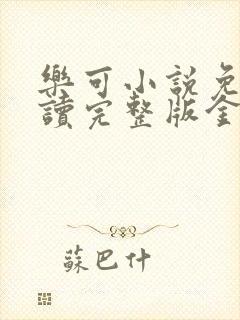 樂可小說免
讀完整版全
蘇巴什